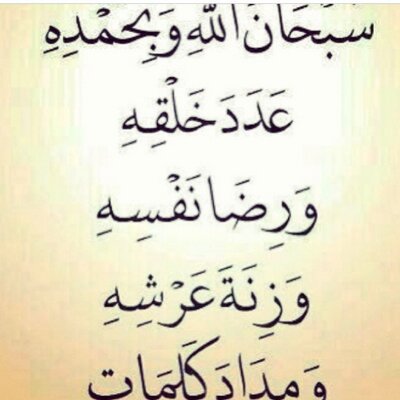 سُبْحَانَ اللّٰهِ وَبِحَمْدِهِ
عَدَدَ خَلْقِهِ
وَرِضَا نَفْسِهِ
وَزِنَةَ عَرْشِهِ
وَمِدَادَ كَلِمَاتِ